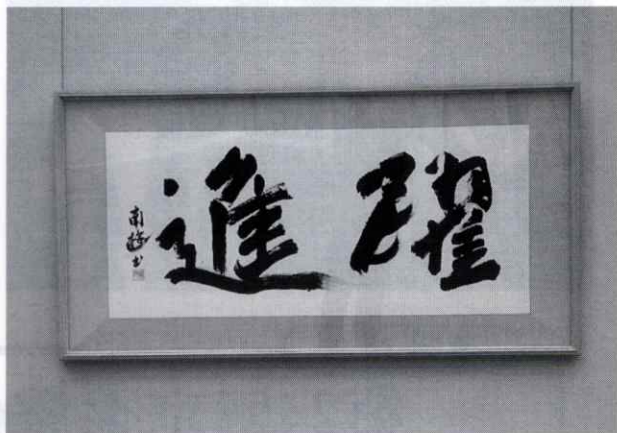 躍進
南海書